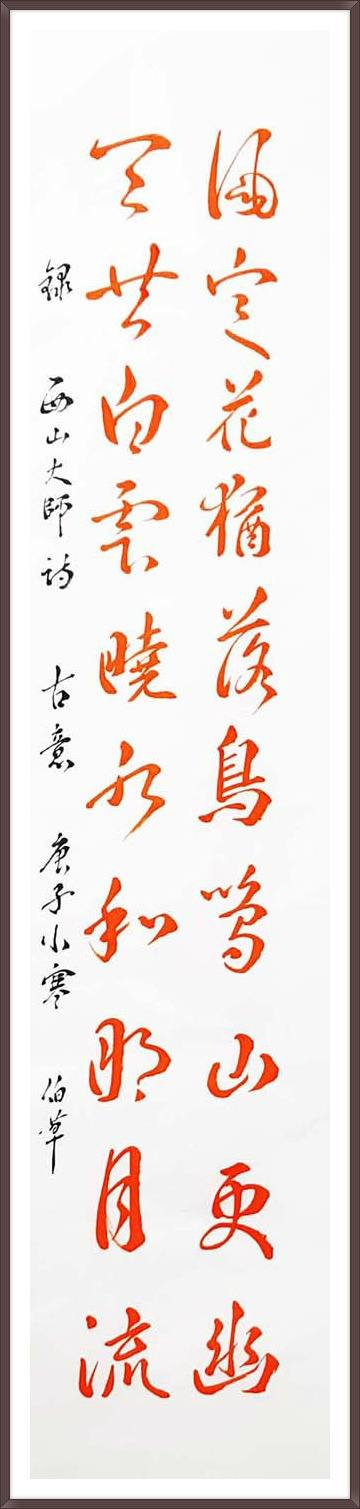 風定花猶落鳥鳴山更幽
天共白雲曉水和明月流
錄 西山大師詩 古意 庚子小寒 伯草